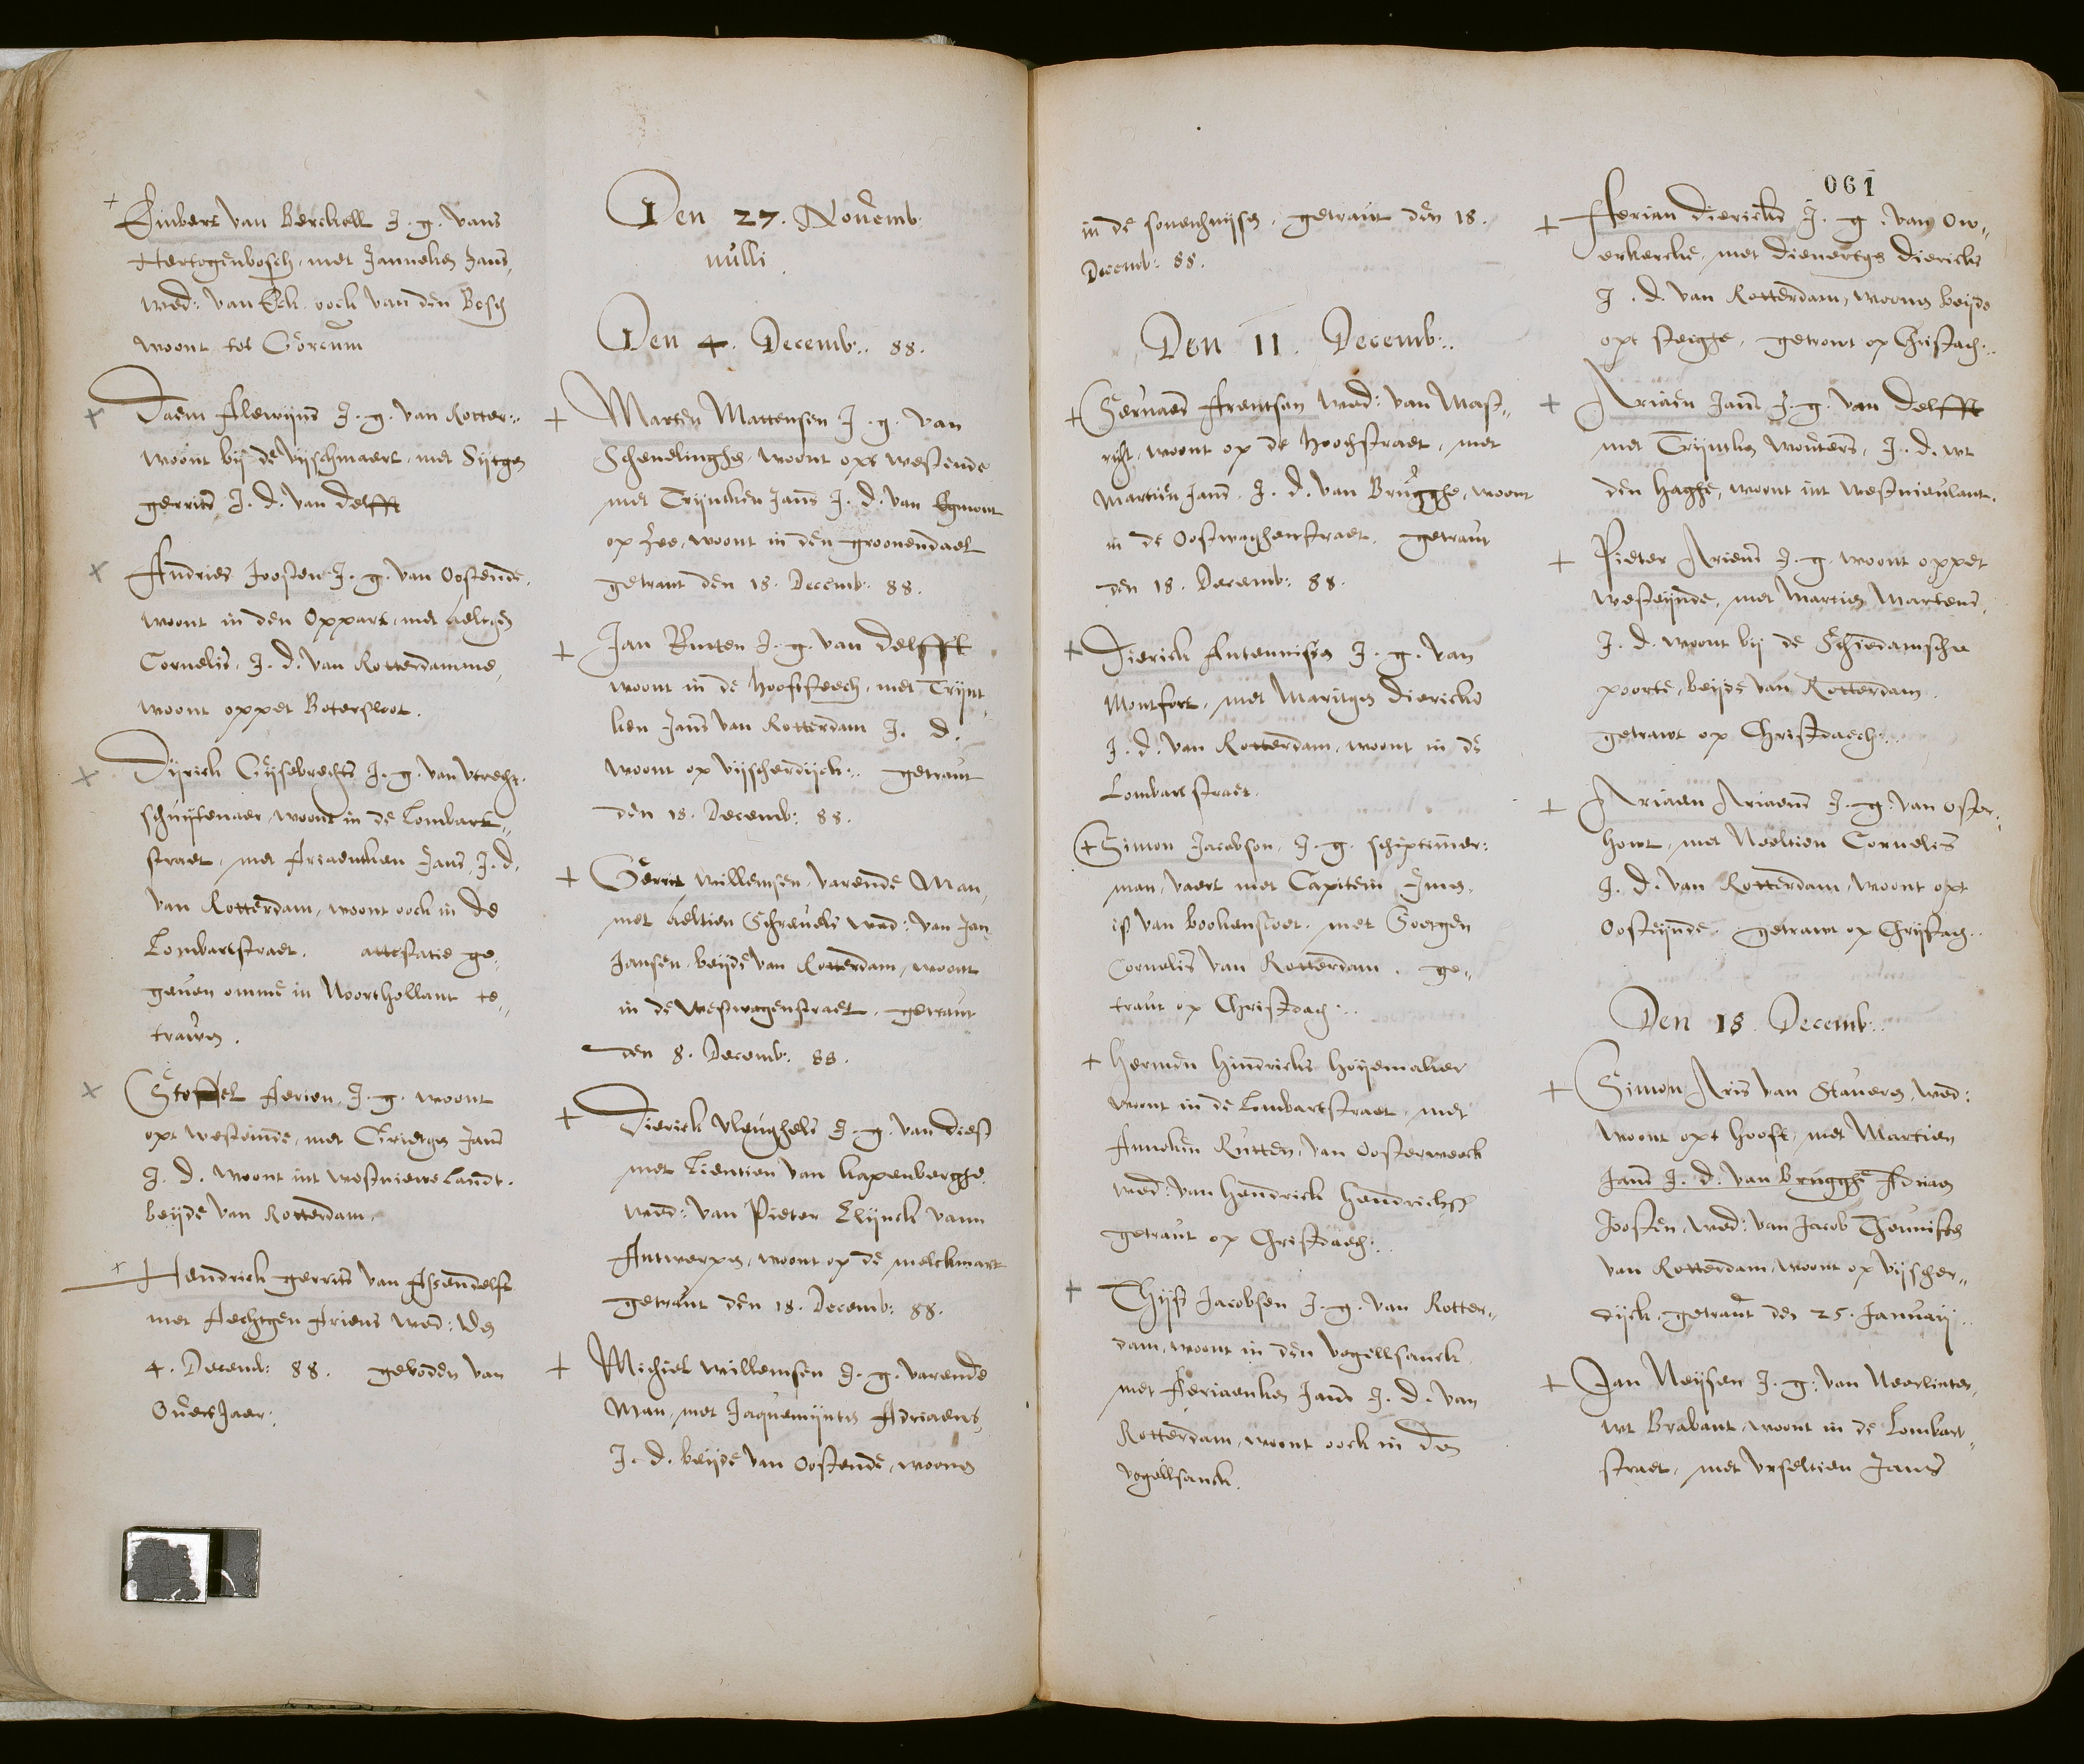 Embert van Berckell J. g. vans
Hertogenbosch, met Janneken Jans,
wed: van Eck oock van den Bosch
woont tot Gorcum
Daem Alewijns J. g. van Rotter::
woont bij de vijschmaert, met Sijtgen
gerrits J. d. van delfft
Andries Joosten J. g. van Oostende.
woont in den Oppart, met Aeltgen
Cornelis, J. d. van Rotterdamme,
woont oppet Botersloot.
Dyrick Gijsebrechts J. g. van Vtrecht.
schuijtenaer, woont in de Lombart„
straet, met Ariaentken Jans, J. d.
van Rotterdam, woont oock in de
Lombartstraet. attestatie ge„
geuen omme in Noorthollant te„
trawen.
Stoffel Aerien, J. g. woont
opt westeinde, met Grietgen Jans
J. d. woont int westnieuwe landt.
beijde van Rotterdam.
Hendrick gerrits van Assendelft
met Aechtgen Ariens wed: Den
4. Decemb: 88. geboden van
Ouer Jaer:
Den 27. Nouemb.
nulli.
Den 4. Decemb:. 88.
Marten Mattensen J. g. van
Schendlinghe, woont opt westende
met Trijncken Jans J. d. van Egmont
op Zee, woont in den groenendael
getraut den 18. Decemb: 88.
Jan Rutten J. g. van delfft
woont in de hooftsteech, met Trijnt„
ken Jans van Rotterdam J. d.
woont op vijscherdijck:. getraut
den 18. Decemb: 88.
Gerrit willemsen, varende Man,
met Aeltien Schreuels wed: van Jan
Jansen, beijde van Rotterdam, woont
in de Westwagenstraet. getraut
den 8. Decemb: 88.
Dierick vleughels J. g. van diest
met Lientien van kapenbergge
wed: van Pieter Elijnck vann
Antwerpen, woont op de melckmart
getraut den 18. Decemb: 88.
Michiel willemsen J. g. varende
Man, met Jaquemijntgen Adriaens,
J. d. beijde van Oostende, woonen
in de getraut den 18.
Decemb: 88.
Den 11. Decemb:.
Seruaes Arentsen wed: van Mast„
richt, woont op de hoochstraet, met
Martien Jans. J. d. van Brugghe, woont
in de Oostwaghenstraet. getraut
den 18. Decemb: 88.
Dierick Antennissen J. g. van
Montfort, met Maritgen diericks
J. d. van Rotterdam, woont in de
Lombartstraet.
Simon Jacobson, J. g. schiptimer:
man, vaert met Capitein
is van bookensloet. met Soetgen
Cornelis van Rotterdam. ge„
traut op Christdag:.
Hermen hindricks hoijemaker
woont in de Lombartstraet, met
Anneken Rutten, van Oosterweeck
wed: van hendrick hendricksen
getraut op Christdaech:.
Thijs Jacobsen J. g. van Rotter„
dam, woont in den vogellsanck.
met Aeriaenken Jans J. d. van
Rotterdam, woont oock in den
vogellsanck.
061
Aerian diericks J. g. van Ow„
erkercke, met dienertge diericks
J. d. van Rotterdam, woonen beijde
opt steigge, getrout op Christach:.
Ariaen Jans J. g. van delfft
met Trijntken wouters, J. d. wt
den haghe, woont int westnieulant.
Pieter Ariens J. g. woont oppet
westeijnde, met Martien Martens,
J. d. woont bij de Schiedamsche
poorte, beijde van Rotterdam.
getrawt op Christdaech:.
Ariaen Ariaens J. g. van Oster„
hout, met Neeltien Cornelis
J. d. van Rotterdam, woont opt
Oosteijnde. getrawt op Christach.
Den 18. Decemb:.
Simon Aris van Stauern, wed:
woont opt hooft, met Martien
Jans J. d. van Brugghe Adriaen
Joosten, wed: van Jacob Theunissen
van Rotterdam, woont op vijscher„
dijck. getraut den 25. Januarij.
Jan Neijsen J. g. van Neerlinter,
wt Brabant, woont in de Lombart„
straet, met vrseltien Jans